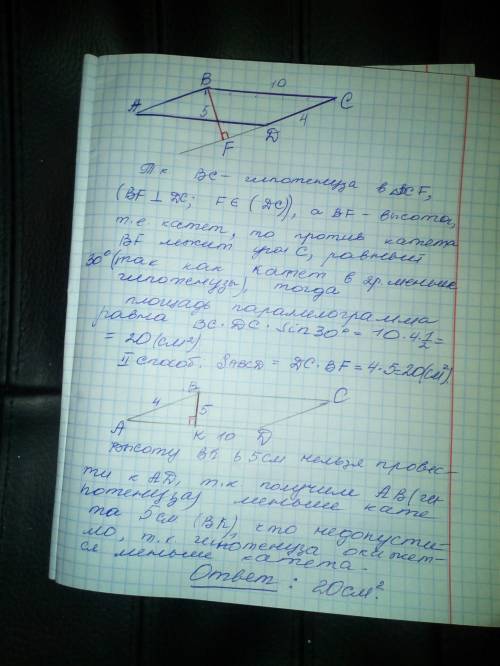 B 10 C
A 5 4
D
F
Т.к BC - гипотенуза в ΔBCF,
(BF ⊥ DC; F ∈ (DC)), а BF - высота,
т.е катет, то против катета
BF лежит угол C, равный
30° (так как катет в 2р. меньше
гипотенузы), тогда
площадь параллелограмма
равна BC · DC · Sin30° = 10 · 4 · 1/2 =
= 20 (см²)
II способ. SABCD = DC · BF = 4 · 5 = 20 (см²)
B C
4 5
A K 10 D
Высоту BK в 5см нельзя провес-
ти к AD, т.к получим AB (ги-
потенуза) меньше кате-
та 5см (BK), что недопусти-
мо, т.к гипотенуза окажет-
ся меньше катета.
Ответ: 20см².